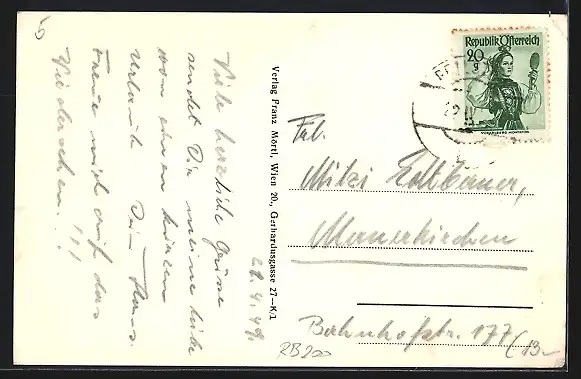 Viele herzliche Grüsse
sendet Dir meine liebe
von einem kurzen
Urlaub Dein Hans.
Freue mich auf das
Wiedersehen!!!
22.4.49.
Verlag Franz Mörtl, Wien 20., Gerhardusgasse 27—K/1
Republik Österreich
20
g
VORARLBERG MONTAFON
Frl.
Mitzi Edtbauer,
Mauerkirchen
Bahnhofstr. 177
RB200
13.-